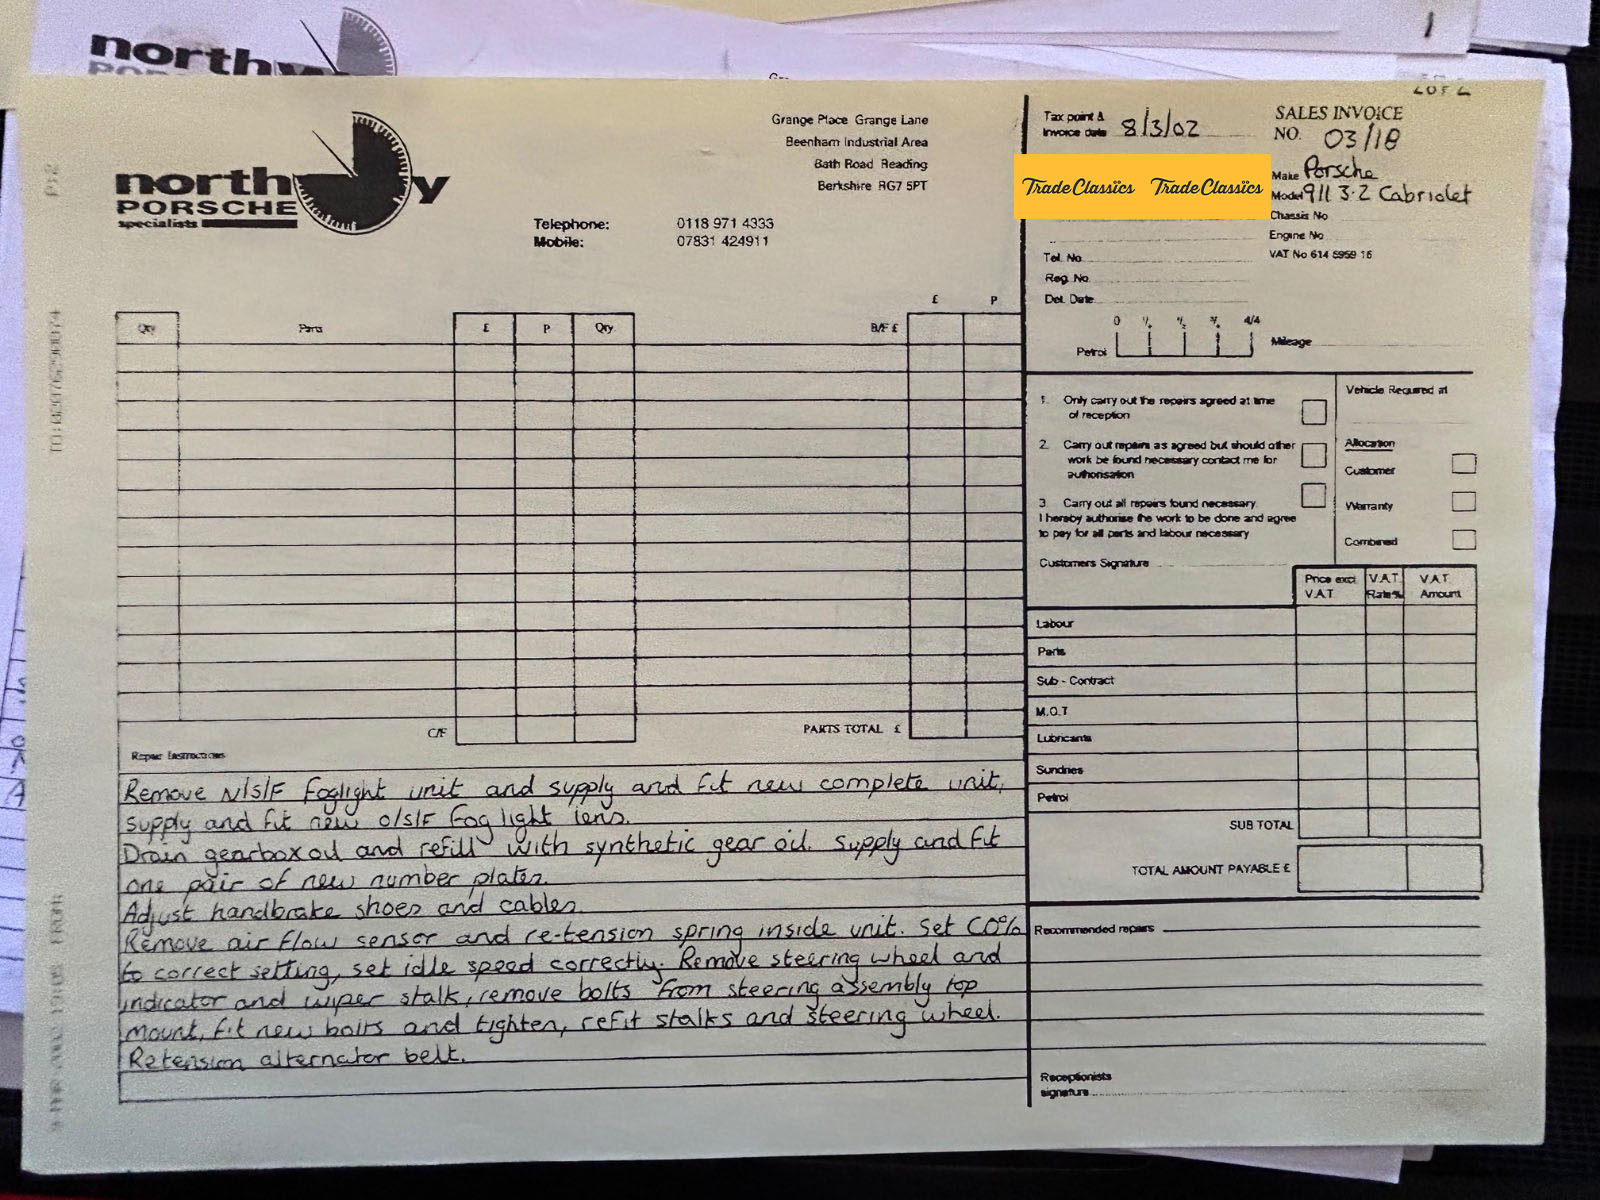 northw
1
2 OF 2
northway
PORSCHE
specialists
Grange Place Grange Lane
Beenham Industrial Area
Bath Road Reading
Berkshire RG7 5PT
Telephone: 0118 971 4333
Mobile: 07831 424911
Tax point &
Invoice date 8/3/02
SALES INVOICE
NO. 03/18
TradeClassics TradeClassics
Make Porsche
Model 911 3.2 Cabriolet
Chassis No
Engine No
VAT No 614 5959 16
Tel. No
Reg. No
Del. Date
0 1/4 1/2 3/4 4/4
Petrol
Mileage
£ P
Qty Parts £ P Qty B/F £
C/F PARTS TOTAL £
1. Only carry out the repairs agreed at time
of reception
2. Carry out repairs as agreed but should other
work be found necessary contact me for
authorisation
3. Carry out all repairs found necessary
I hereby authorise the work to be done and agree
to pay for all parts and labour necessary
Customers Signature
Vehicle Required at
Allocation
Customer
Warranty
Combined
Price excl V.A.T. V.A.T.
V.A.T Rate% Amount
Labour
Parts
Sub - Contract
M.O.T
Lubricants
Sundries
Petrol
SUB TOTAL
TOTAL AMOUNT PAYABLE £
Repair Instructions
Remove N/S/F foglight unit and supply and fit new complete unit,
supply and fit new o/s/F fog light lens.
Drain gearbox oil and refill with synthetic gear oil. Supply and fit
one pair of new number plates.
Adjust handbrake shoes and cables.
Remove air flow sensor and re-tension spring inside unit. Set CO%
to correct setting, set idle speed correctly. Remove steering wheel and
indicator and wiper stalk, remove bolts from steering assembly top
mount, fit new bolts and tighten, refit stalks and steering wheel.
Retension alternator belt.
Recommended repairs
Receptionists
signature